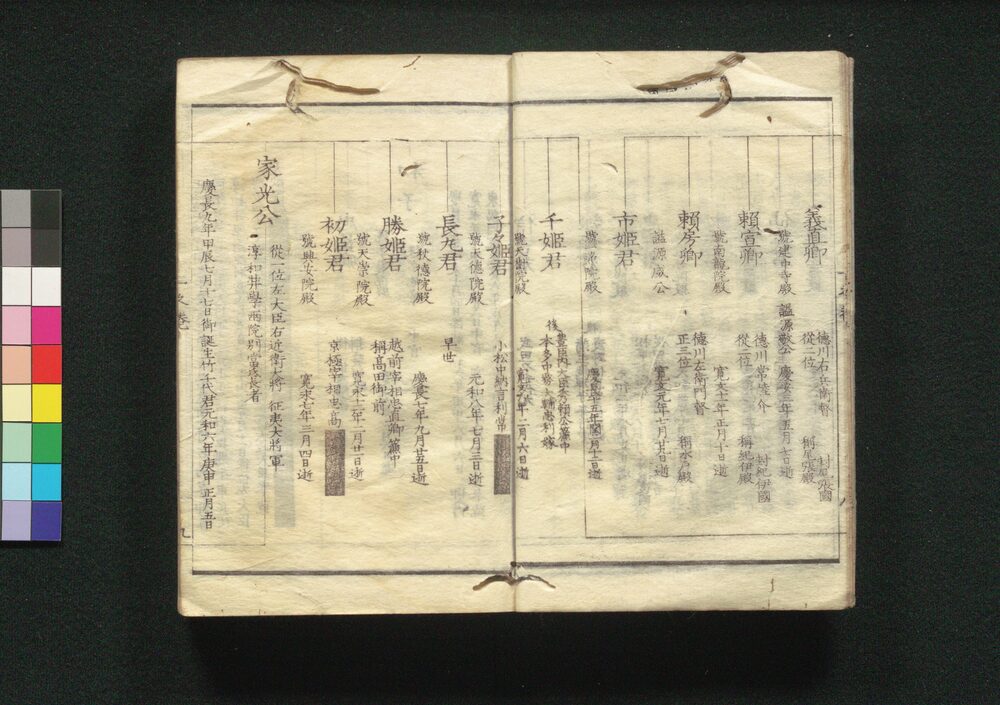 義直卿
徳川右兵衛督
封尾張國
從二位
稱尾張殿
號建中寺殿
諡源敬公
慶安三年五月七日逝
頼宣卿
徳川常陸介
封紀伊國
從二位
稱紀伊殿
號南龍院殿
寛文十一年正月十日逝
頼房卿
徳川左衛門督
正三位
稱水戸殿
諡源威公
寛文元年七月廿九日逝
市姫君
號清淨院殿
慶長十五年閏二月十二日逝
千姫君
豊臣内大臣秀頼公簾中
後
本多中務大輔忠刻嫁
號天樹院殿
寛文六年二月六日逝
子々姫君
小松中納言利常
號天徳院殿
元和八年七月三日逝
長丸君
早世
號秋徳院殿
慶長七年九月廿五日逝
勝姫君
越前宰相忠直卿簾中
稱高田御前
號天崇院殿
寛文十二年二月廿一日逝
初姫君
京極宰相忠高
號興安院殿
寛永七年三月四日逝
家光公
從一位左大臣右近衛大將
征夷大將軍
淳和奨學兩院別當源氏長者
慶長九年甲辰七月十七日御誕生竹千代君元和六年庚申正月五日
九